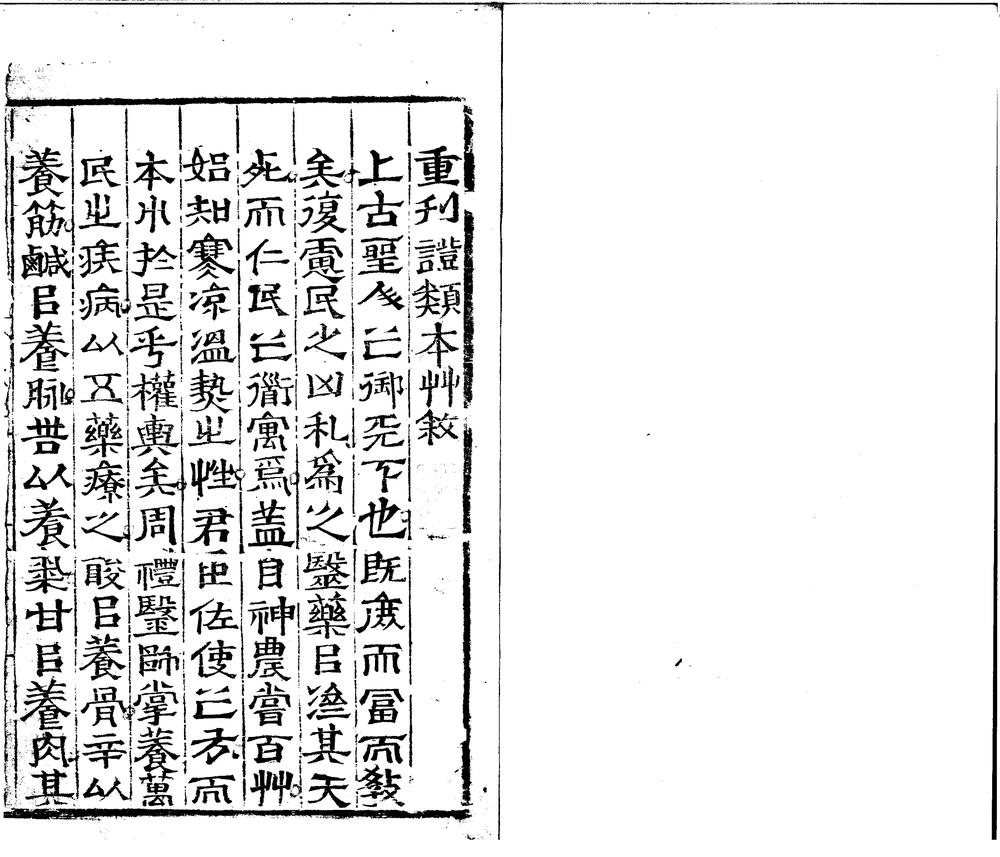 重刋證類本艸敘
上古聖人之御天下也既庶而富而敎
矣復慮民之凶札爲之毉藥㠯濟其天
死而仁民之術寓焉蓋自神農嘗百艸
始知寒凉溫熱之性君臣佐使之方而
本屮於是乎權輿矣周禮毉師掌養萬
民之疾病以五藥療之酸㠯養骨辛以
養筋鹹㠯養脉苦以養氣甘㠯養肉其